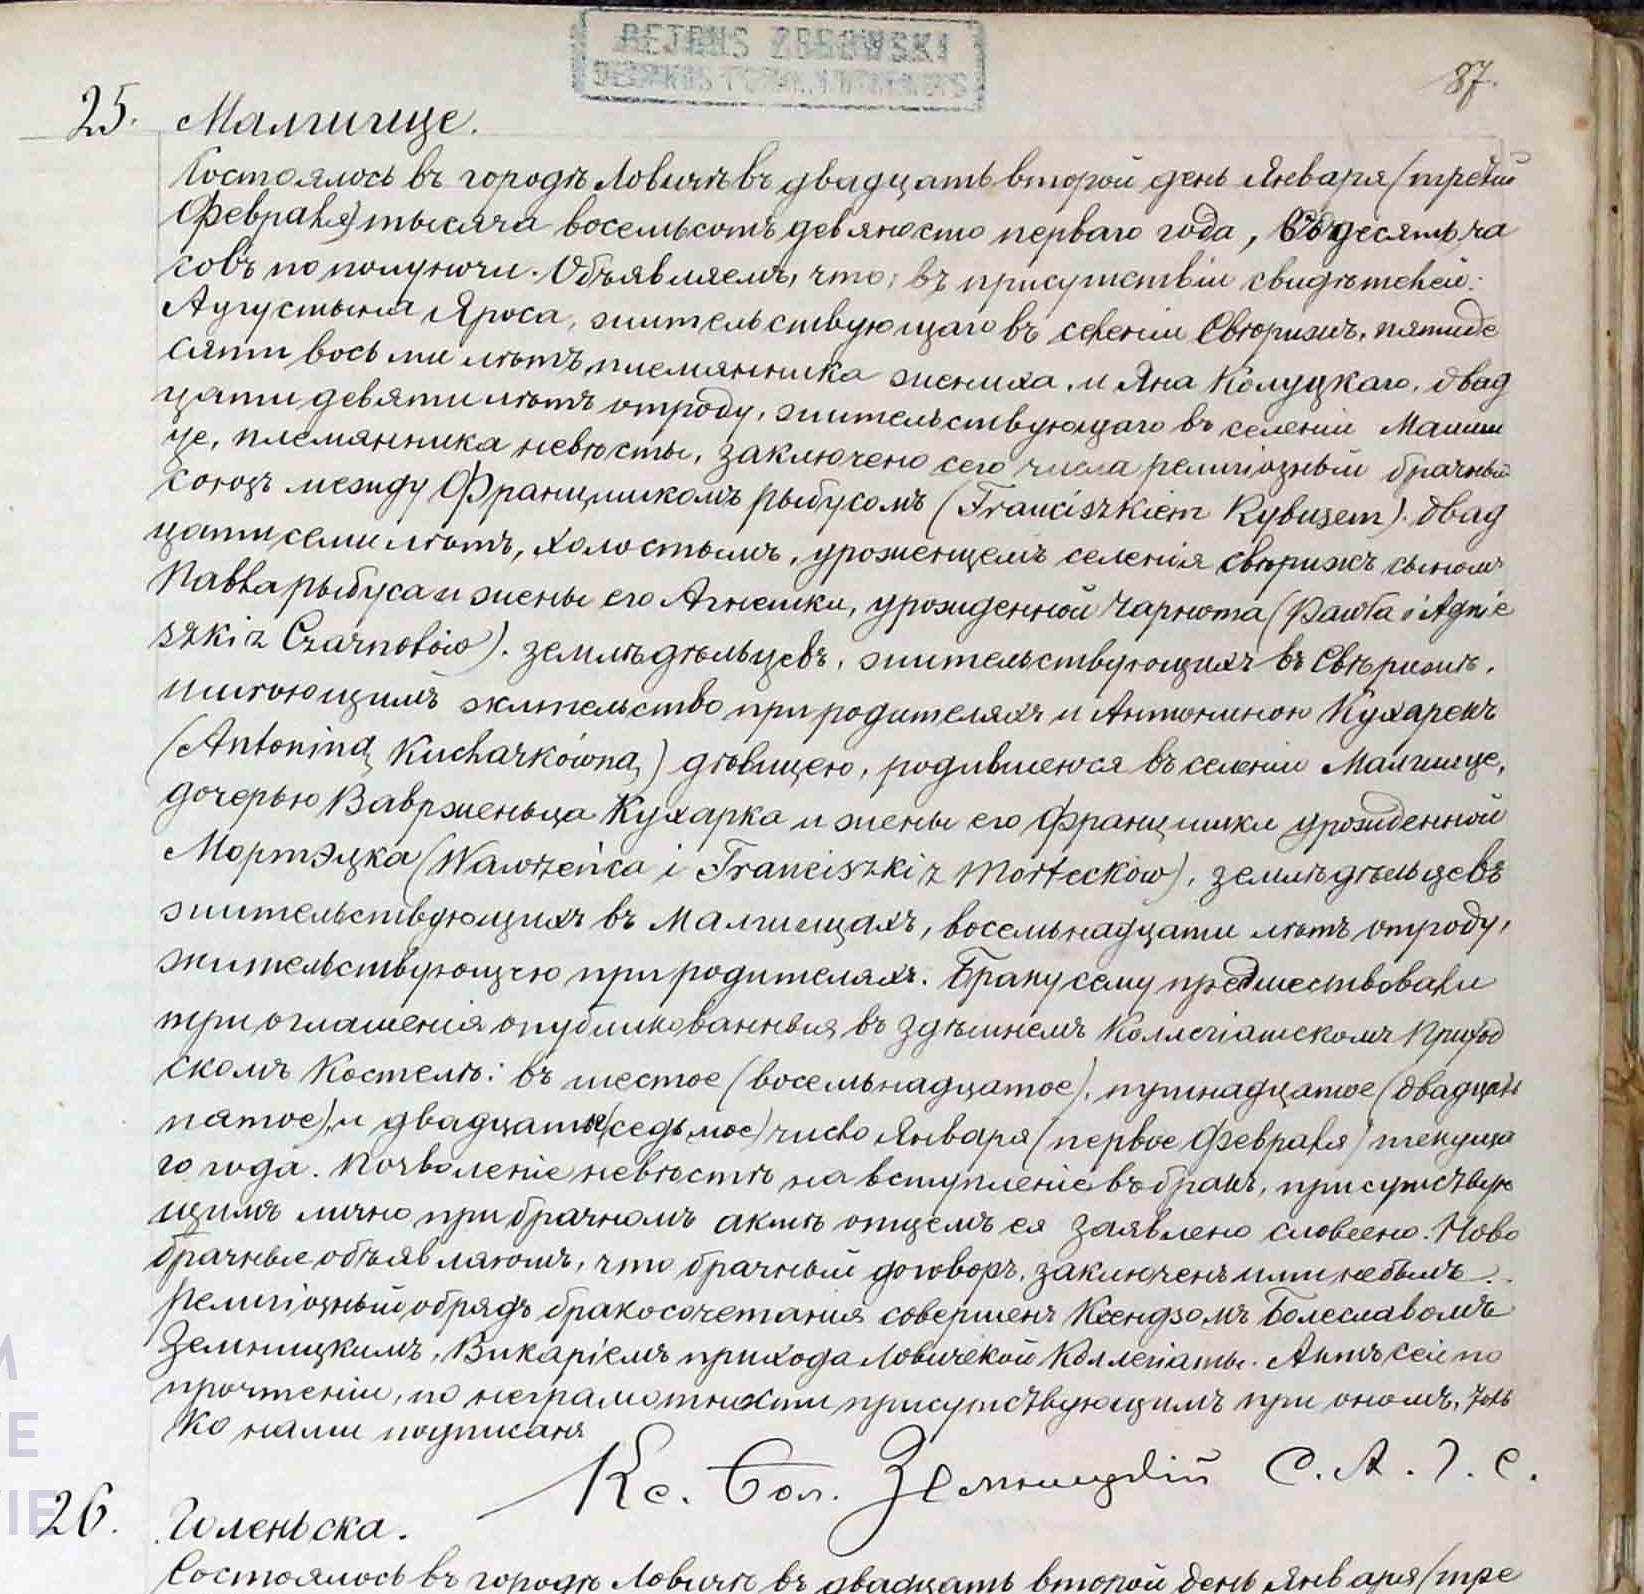 REJONS ZBROWSKI
87.
25. Малшице.
Состоялось въ городѣ Ловичѣ въ двадцать второй день Января (третій
Февраля) тысяча восемьсотъ девяносто перваго года, въ десять ча
совъ по полуночи. Объявляемъ, что въ присутствіи свидѣтелей:
Аугустына Яроса, жительствующаго въ селеніи Свѣрижъ, пятиде
сяти восьми лѣтъ, племянника жениха, и Яна Колуцкаго, двад
цати девяти лѣтъ отроду, жительствующаго въ селеніи Малши
це, племянника невѣсты, заключено сего числа религіозный брачный
союзъ между Францишкомъ Рыбусомъ (Franciszkiem Rybusem). двад
цати семи лѣтъ, холостымъ, уроженцемъ селенія Свѣрижъ сыномъ
Павла Рыбуса и жены его Агнешки, урожденной Чарнота (Pawła i Agnie
szki z Czarnotów). земледѣльцевъ, жительствующихъ въ Свѣрижѣ,
имѣющимъ жительство при родителяхъ и Антониною Кухарекъ
(Antoniną Kucharkówną) дѣвицею, родившеюся въ селеніи Малшице,
дочерью Ваврженьца Кухарка и жены его Францишки урожденной
Мортэцка (Wawrzeńca i Franciszki z Morteckow), земледѣльцевъ
жительствующихъ въ Малшицахъ, восемьнадцати лѣтъ отроду,
жительствующею при родителяхъ. Браку сему предшествовали
три оглашенія опубликованныя въ здѣшнемъ Коллегіатскомъ Приход
скомъ Костелѣ: въ шестое (восемьнадцатое), путнадцатое (двадцать
пятое), и двадцатые (седьмое) число Января (первое Февраля) текуща
го года. Позволеніе невѣстѣ на вступленіе въ бракъ, присутствую
щимъ лично при брачномъ актѣ отцемъ ея заявлено словесно. Ново
брачные объявляютъ, что брачный договоръ, заключенъ ими небылъ.
Религіозный обрядъ бракосочетанія совершенъ Ксендзомъ Болеславомъ
Земницкимъ, Викаріемъ прихода Ловичской Коллегіаты. Актъ сей по
прочтеніи, по неграмотности присутствующимъ при ономъ, толь
ко нами подписанъ
Кс. Бол. Земницкій С. А. Г. С.
26. Голеньска.
Состоялось въ городѣ Ловичѣ въ двадцать второй день Января (тре